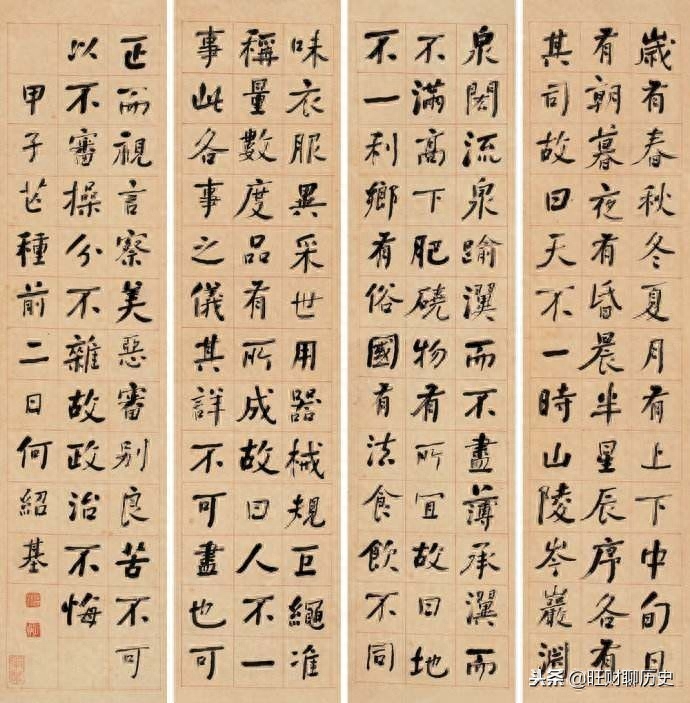 歲有春秋冬夏月有上下中旬日
有朝暮夜有昏晨半星辰序各有
其司故曰天不一時山陵岑巖淵
泉閎流泉踰瀷而不盡薄承瀷而
不滿高下肥磽物有所宜故曰地
不一利鄉有俗國有法食飲不同
味衣服異采世用器械規巨繩准
稱量數度品有所成故曰人不一
事此各事之儀其詳不可盡也可
正而視言察美惡審别良苦不可
以不審操分不雜故政治不悔
甲子芒種前二日何紹基
头条 @旺财聊历史